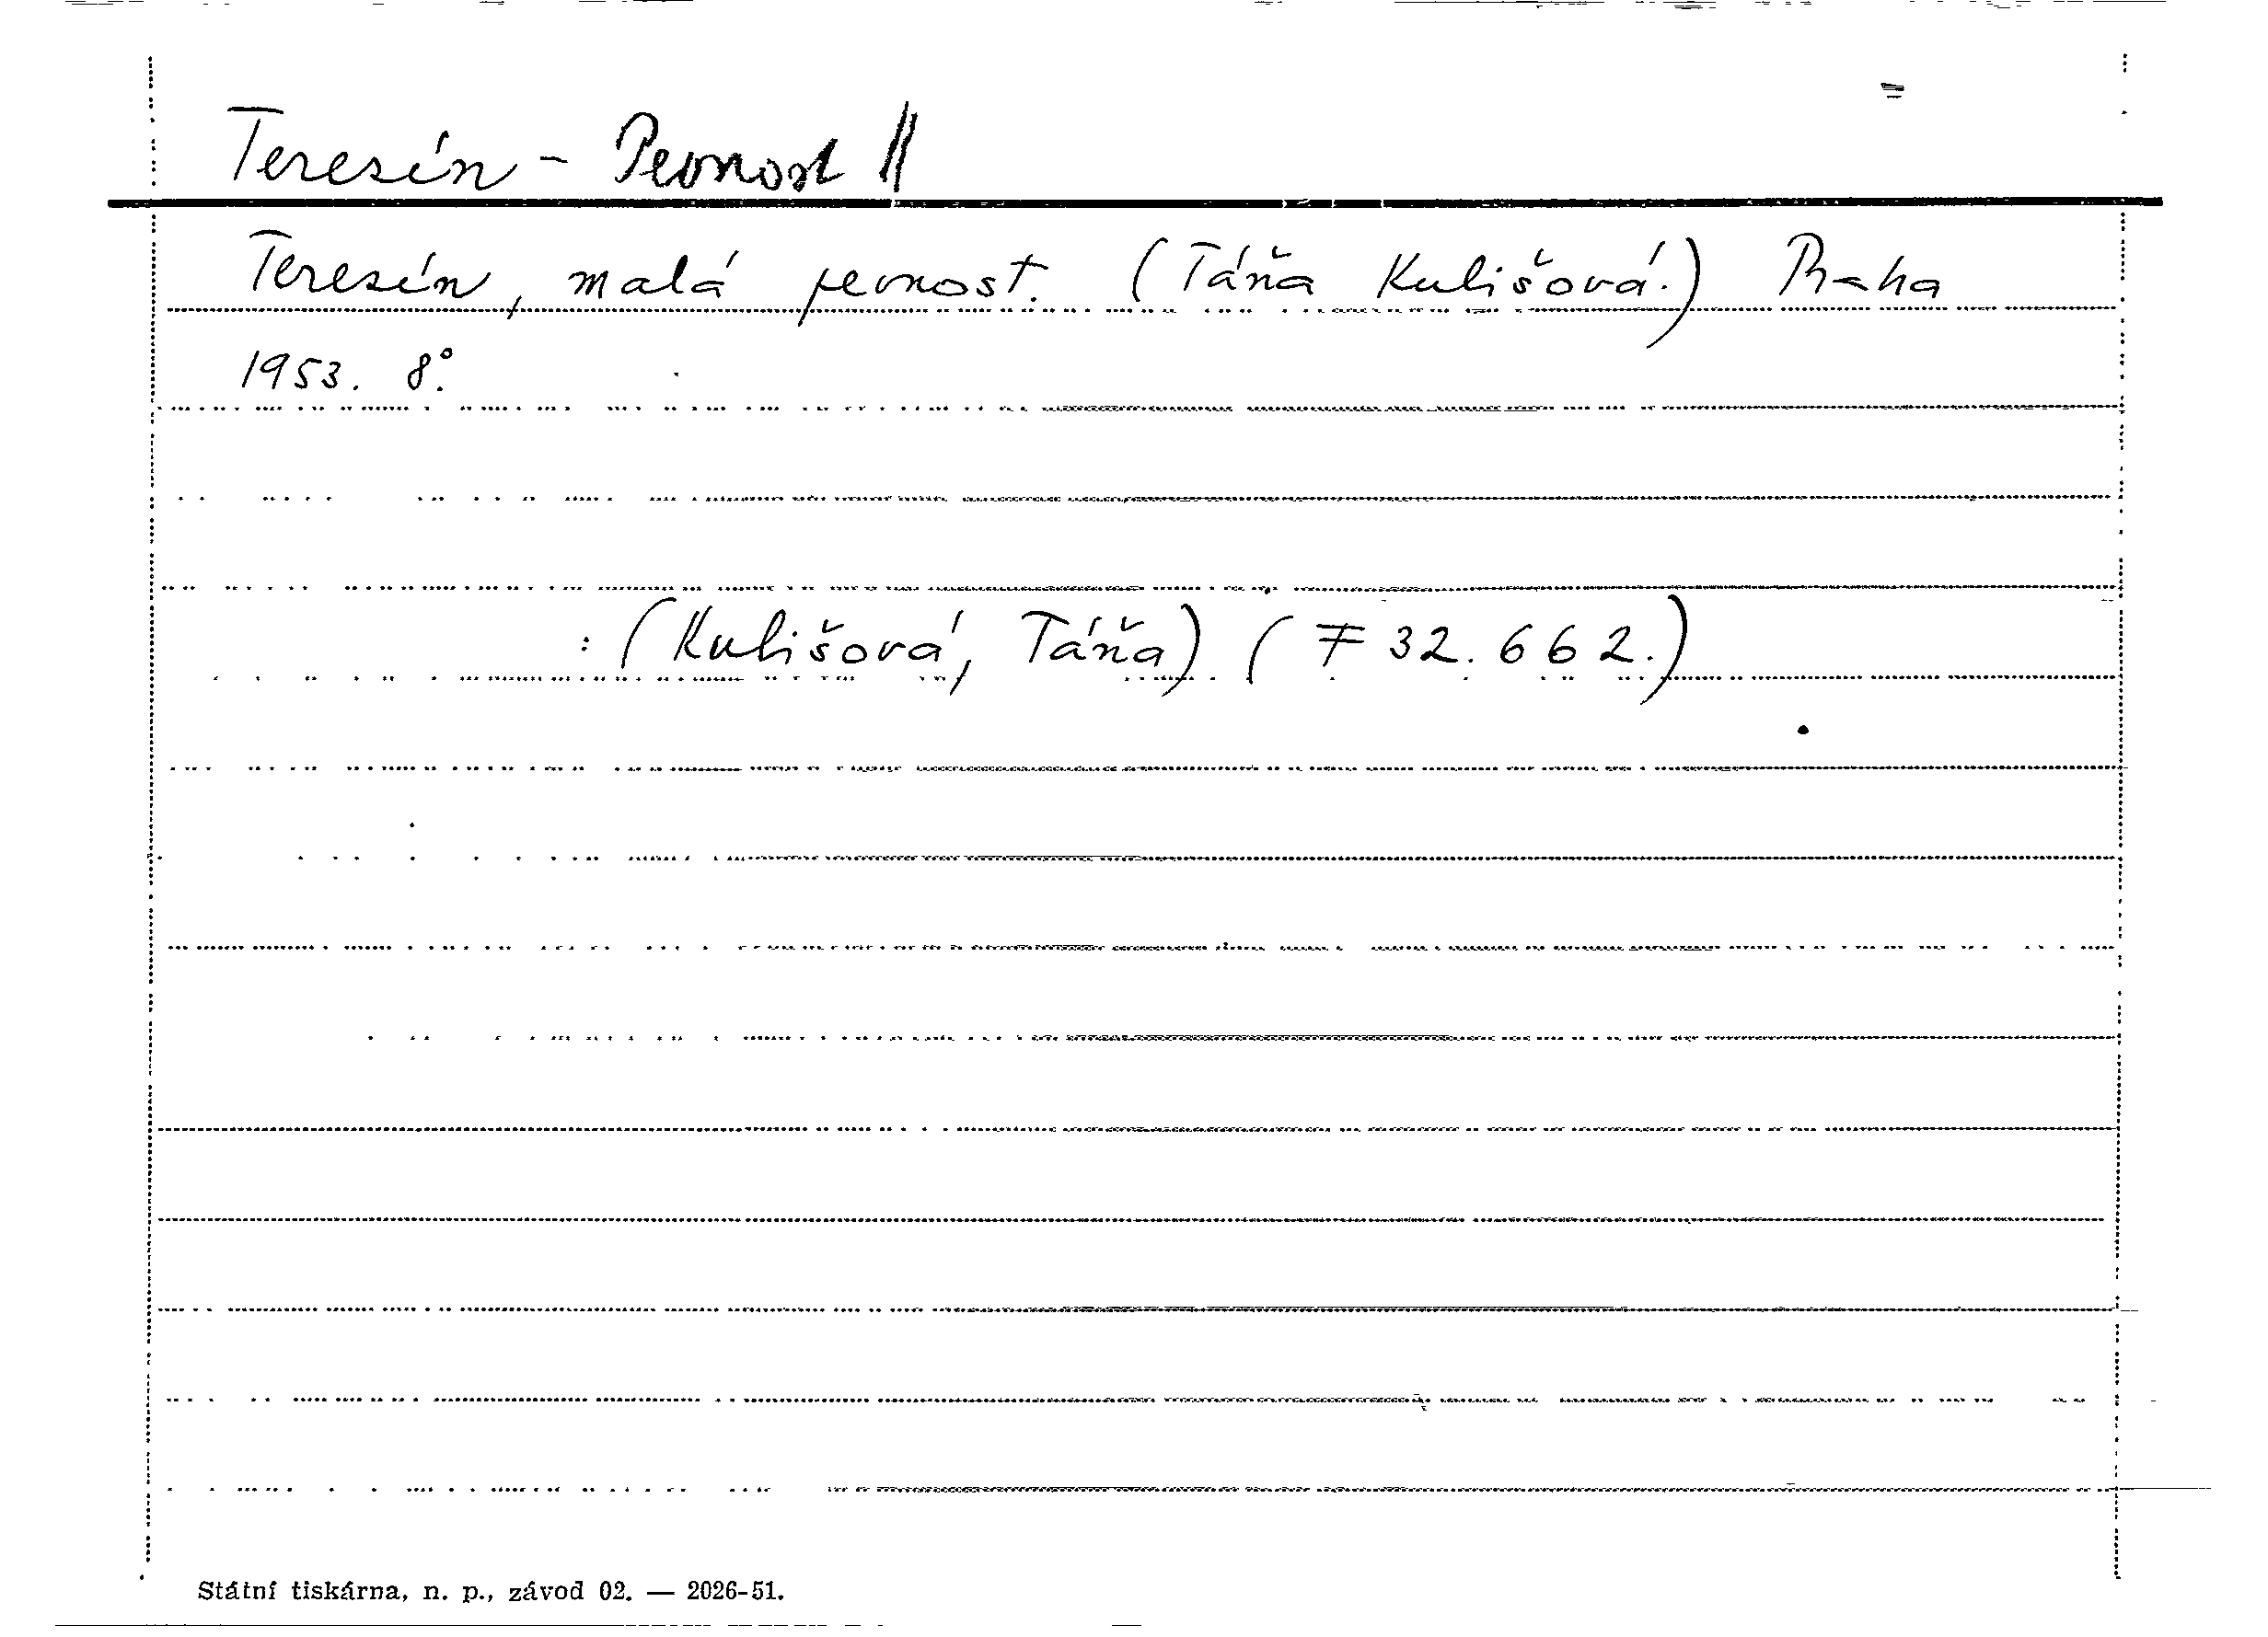 Teresín - Pevnost //
Teresín, malá pevnost. (Táňa Kulišová.) Praha
1953. 8°.
: (Kulišová, Táňa) (F 32.662.)
Státní tiskárna, n. p., závod 02. — 2026-51.